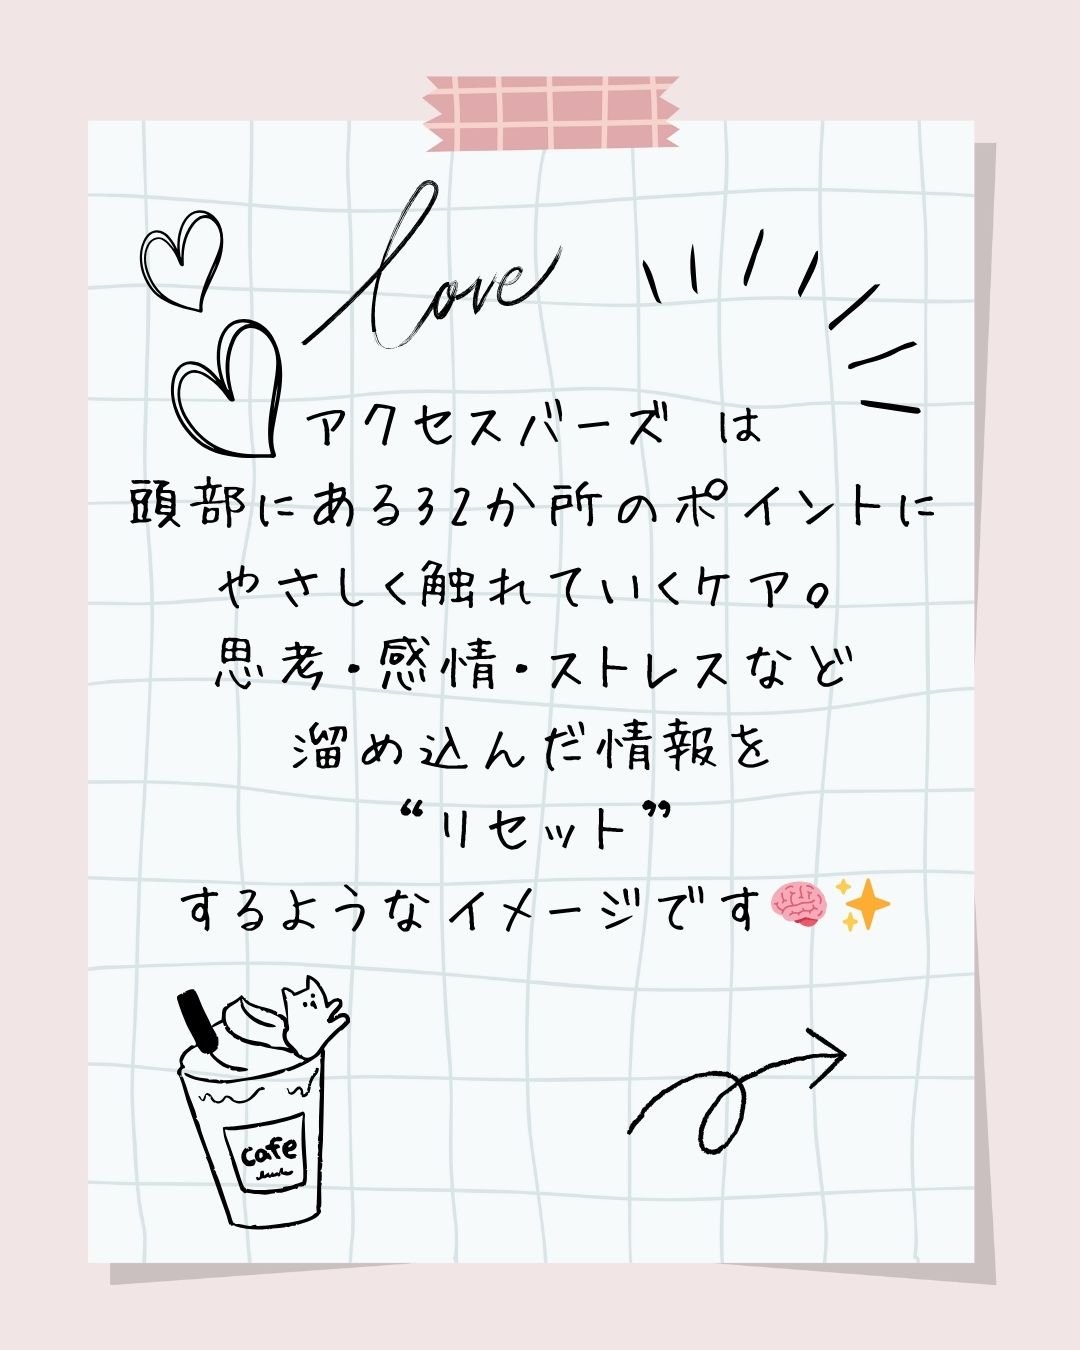 love
アクセスバーズ は
頭部にある32か所のポイントに
やさしく触れていくケア。
思考・感情・ストレスなど
溜め込んだ情報を
“リセット”
するようなイメージです🧠✨
cafe